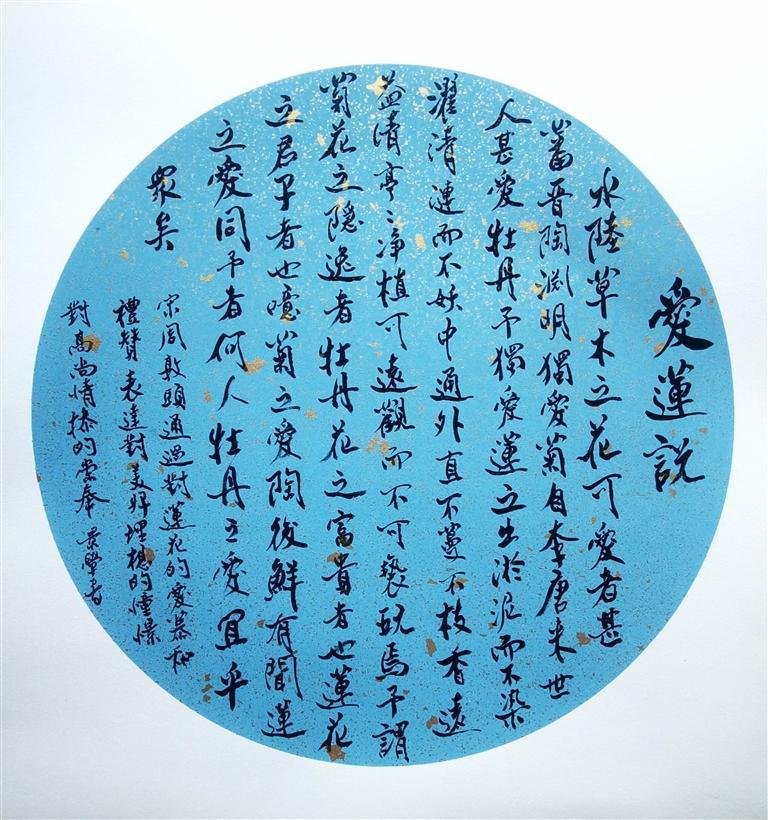 愛蓮説
水陸草木之花可愛者甚
蕃晋陶渊明獨愛菊自李唐来世
人甚愛牡丹予獨愛蓮之出淤泥而不染
濯清漣而不妖中通外直不蔓不枝香遠
益清亭〻净植可遠觀而不可褻玩焉予謂
菊花之隱逸者牡丹花之富貴者也蓮花
之君子者也噫菊之愛陶後鮮有聞蓮
之愛同予者何人牡丹之愛宜乎
眾矣
宋周敦頤通過對蓮花的愛慕和
禮贊表達對美好理想的憧憬
對高尚情操的崇奉 景學書